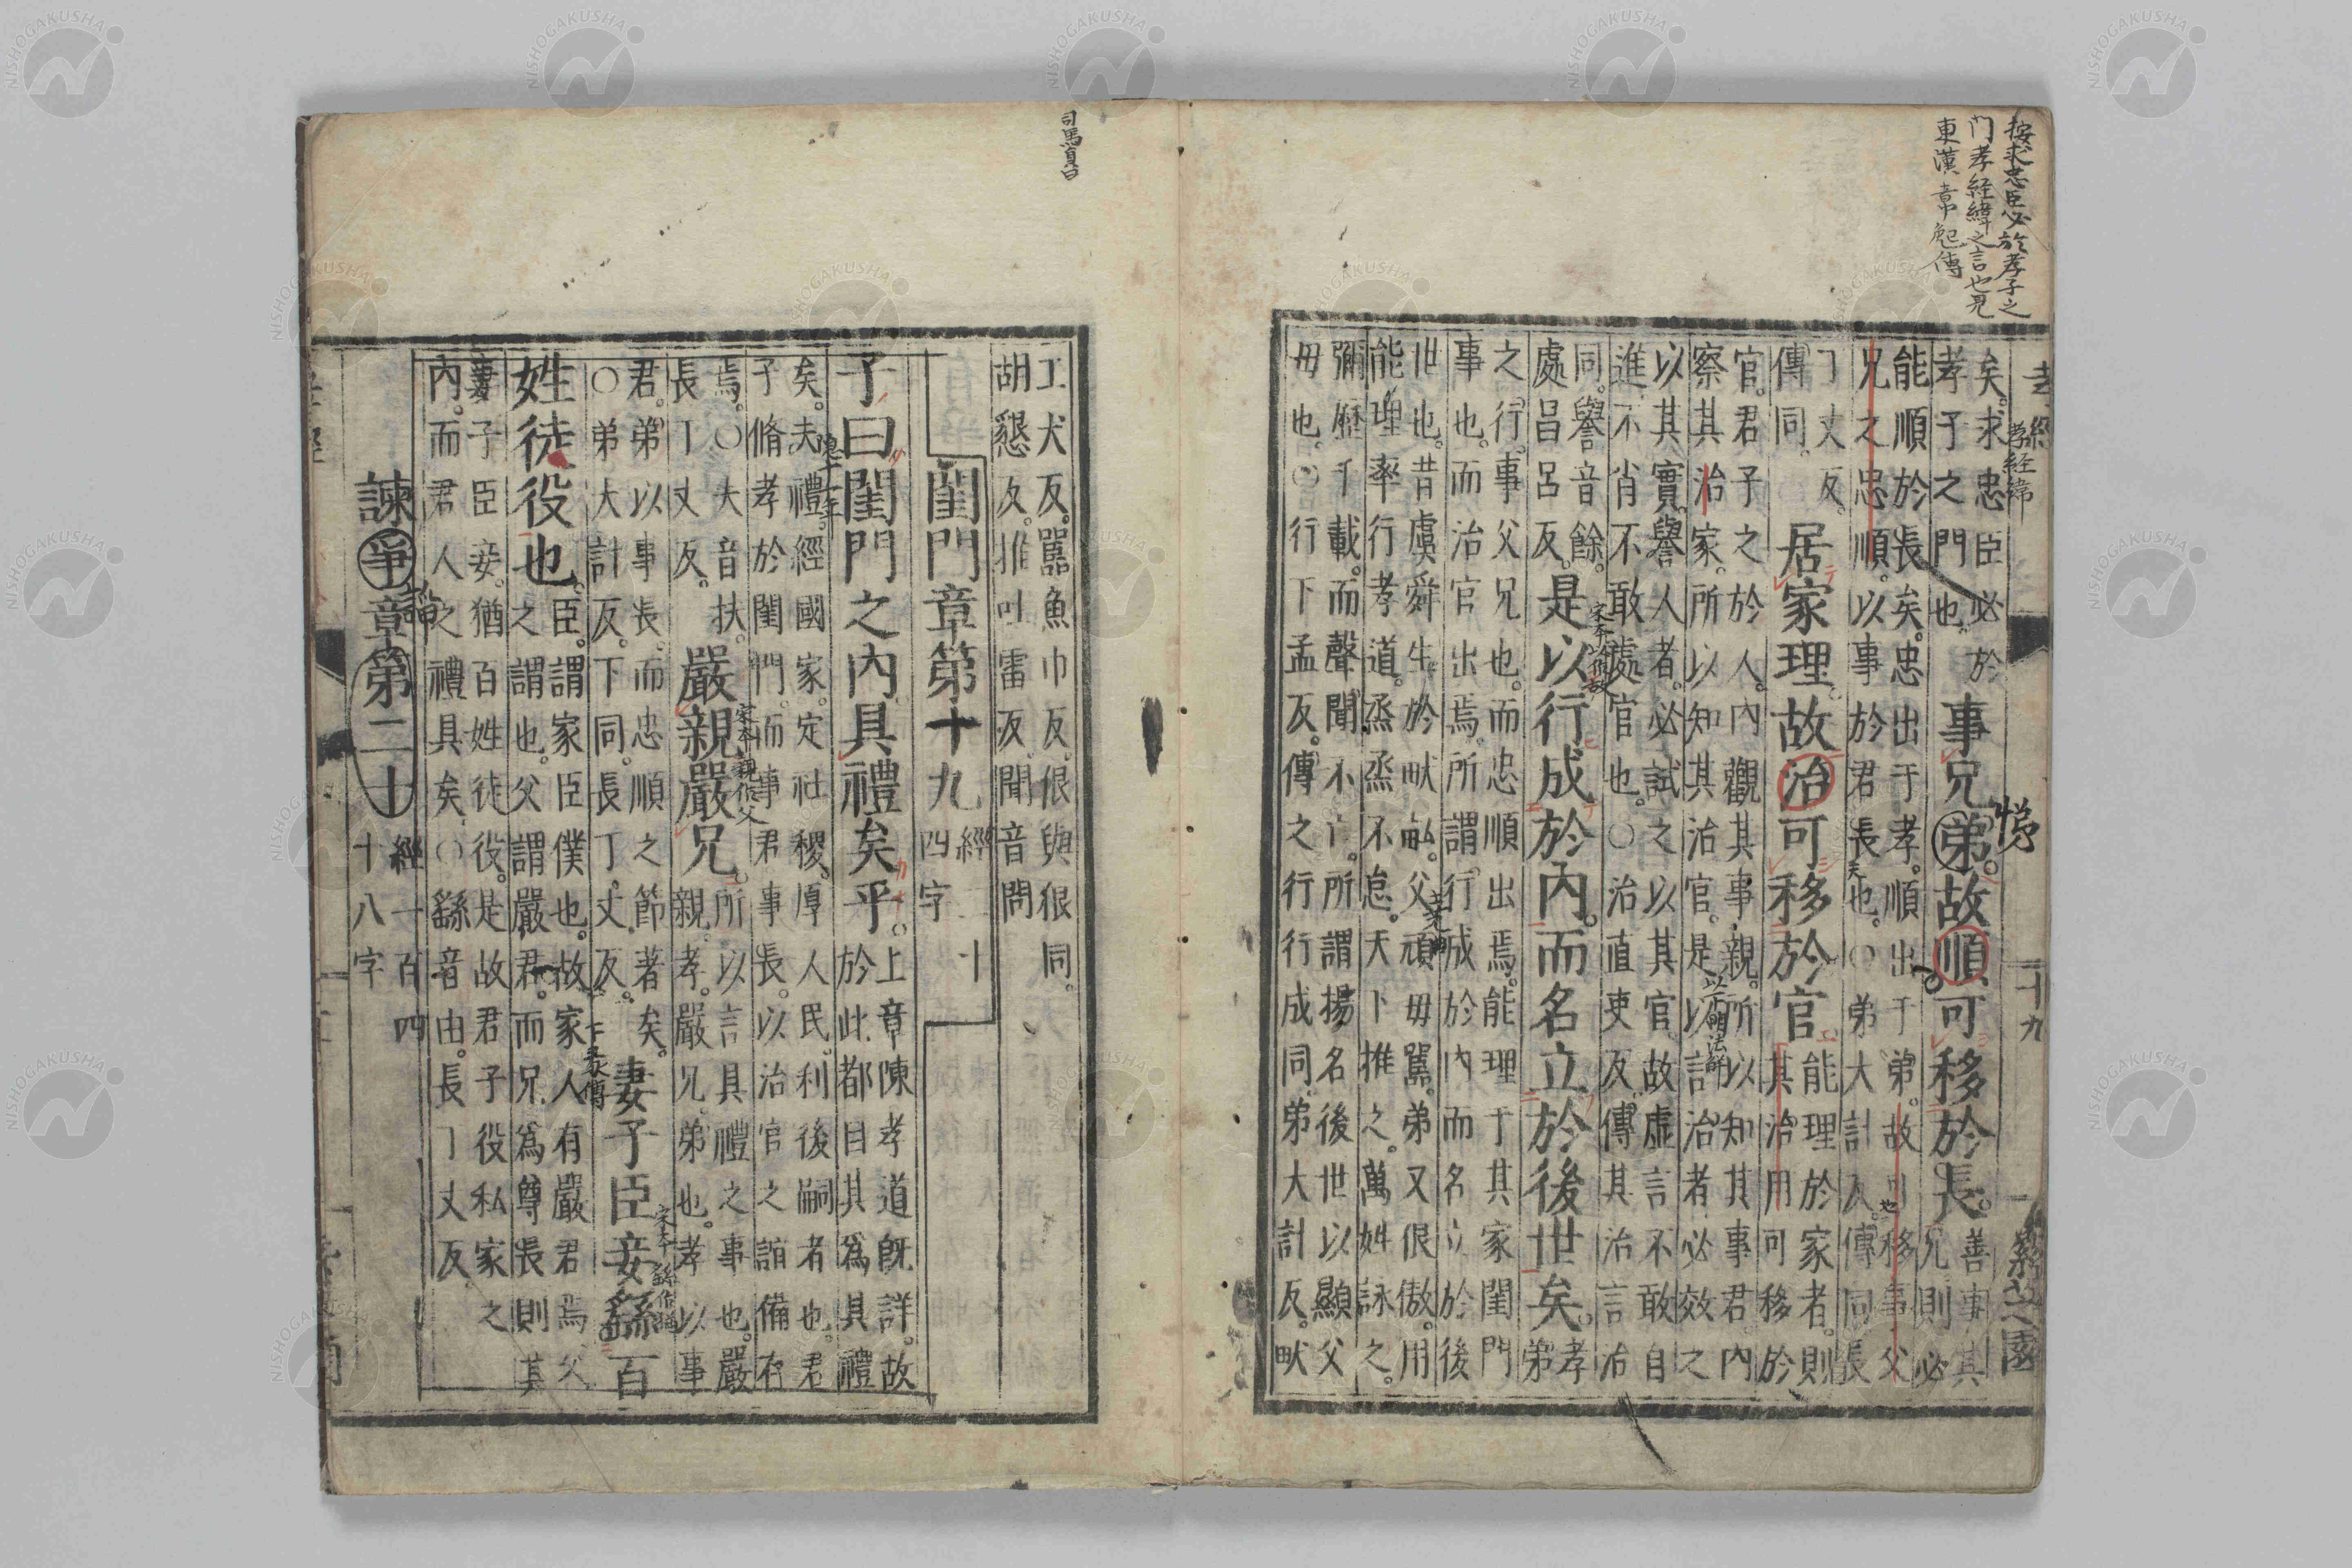 按求忠臣必於孝子之
门孝经緯之言也見
東漢韋彪傳
孝經
孝经緯
十九
矣。求忠臣必於
孝子之門也。
事兄弟。故順可移於長。
善事其
兄則必
悌
能順於長矣。忠出于孝。順出于弟。故可移事父
兄之忠順。以事於君長也。〇弟大計反。傳同。長
丁丈反。
傳同。
居家理。故治可移於官。
能理於家者。則
其治用可移於
官。君子之於人。內觀其事親。所以知其事君。內
察其治家。所以知其治官。是以言治者必效之
以其實。譽人者。必試之以其官。故虛言不敢自
進。不肖不敢處官也。〇治直吏反。傳其治言治
同。譽音餘。
處昌呂反。
是以行成於內。而名立於後世矣。
孝
弟
之行。事父兄也。而忠順出焉。能理于其家閨門
事也。而治官出焉。所謂行成於內而名立於後
世也。昔虞舜生於畎畝。父頑母嚚。弟又佷傲。用
能理率行孝道。烝烝不怠。天下推之。萬姓詠之。
彌歷千載。而聲聞不亡。所謂揚名後世以顯父
母也。〇行下孟反。傳之行行成同。弟大計反。畎
司馬貞曰
工犬反。嚚魚巾反。佷與很同。
胡懇反。推吐雷反。聞音問
閨門章第十九
經二十
四字
子曰閨門之內具禮矣乎。
上章陳孝道既詳。故
於此都目其爲具禮
矣。夫禮。經國家。定社稷。厚人民。利後嗣者也。君
子脩孝於閨門。而事君事長。以治官之誼備存
焉。〇夫音扶。
長丁丈反。
嚴親嚴兄。
宋本親作父
所以言具禮之事也。嚴
親孝。嚴兄弟也。孝以事
君。弟以事長。而忠順之節著矣。
〇弟大計反。下同。長丁丈反。
妻子臣妾繇百
宋本繇作猶
姓徒役也。
臣。謂家臣僕也。故家人有嚴君焉。父
之謂也。父謂嚴君。而兄爲尊長。則其
妻子臣妾。猶百姓徒役。是故君子役私家之
內。而君人之禮具矣。〇繇音由。長丁丈反。
諫爭章第二十
經一百四
十八字
NISHOGAKUSHA